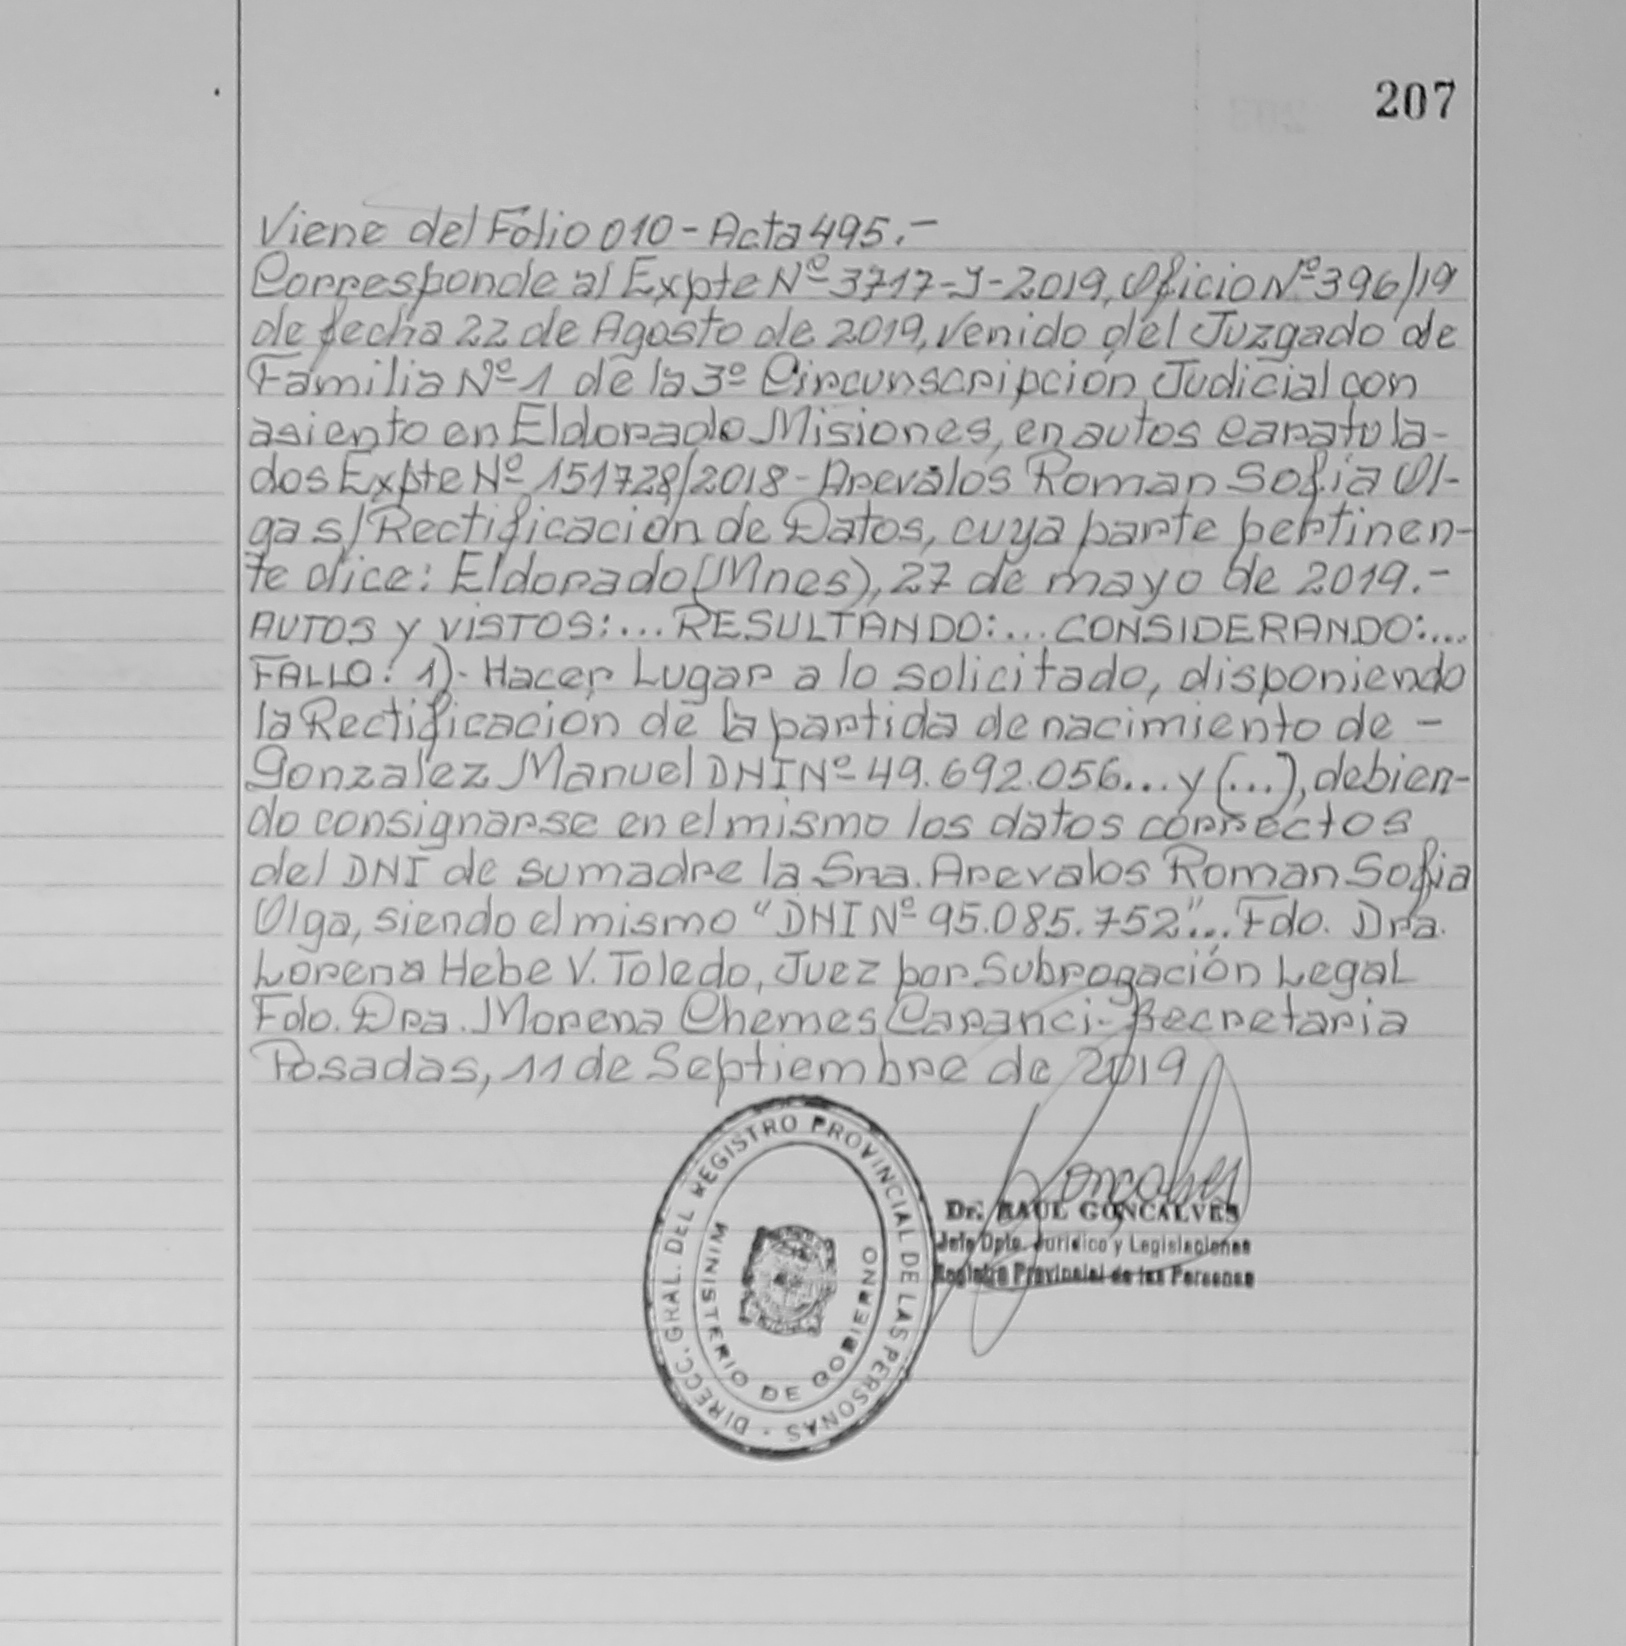 207
Viene del Folio 010 - Acta 495.-
Corresponde al Expte Nº 3717-J-2019, Oficio Nº 396/19
de fecha 22 de Agosto de 2019, venido del Juzgado de
Familia Nº 1 de la 3º Circunscripción Judicial con
asiento en Eldorado Misiones, en autos caratula-
dos Expte Nº 151728/2018 - Arevalos Roman Sofia Ol-
ga s/ Rectificación de Datos, cuya parte pertinen-
te dice: Eldorado (Mnes), 27 de mayo de 2019.-
AUTOS y VISTOS:... RESULTANDO:... CONSIDERANDO:....
FALLO: 1)- Hacer Lugar a lo solicitado, disponiendo
la Rectificación de la partida de nacimiento de -
Gonzalez Manuel DNI Nº 49.692.056... y (...), debien-
do consignarse en el mismo los datos correctos
del DNI de su madre la Sra. Arevalos Roman Sofia
Olga, siendo el mismo "DNI Nº 95.085.752"... Fdo. Dra.
Lorena Hebe V. Toledo, Juez por Subrogación Legal
Fdo. Dra. Morena Chemes Caranci - Secretaria
Posadas, 11 de Septiembre de 2019
DIRECC. GRAL. DEL REGISTRO PROVINCIAL DE LAS PERSONAS -
MINISTERIO DE GOBIERNO
Goncalves
Dr. RAUL GONCALVES
Jefe Dpto. Jurídico y Legislaciones
Registro Provincial de las Personas